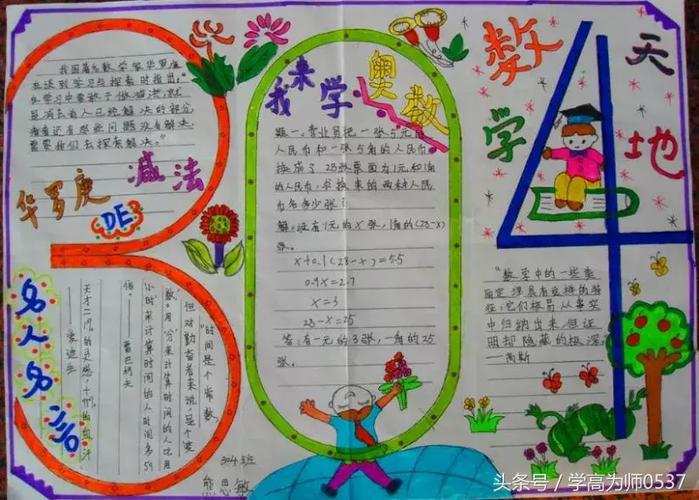 数学天地
我来学奥数
我国著名数学家华罗庚
在谈到学习与探索时指出:"
在学习中要敢于做减法,就
是减去前人已经解决的部分
看看还有那些问题没有解决,
需要我们去探索解决。"
华罗庚
DE
减法
题一、营业员把一张5元的
人民币和一张5角的人民币
换成了28张票面为1元和1角
的人民币,求换来的两种人民
币各多少张?
解:设有1元的x张,1角的(28-x)
张。
x+0.1(28-x)=5.5
0.9x=2.7
x=3
28-x=25
答:有一元的3张,一角的25
张。
"数学中的一些美
丽定理具有这样的特
性:它们极易从事实
中归纳出来,但证
明却隐藏的极深。
——高斯
名人名言
"时间是个常数,
但对勤奋者来说,是个"变
数"。用"分"来计算时间的人比用
"小时"来计算时间的人时间多59
倍。
——雷巴柯夫
天才=1%的灵感,+99%的血汗
——爱迪生
304班
熊思敏
头条号 / 学高为师0537